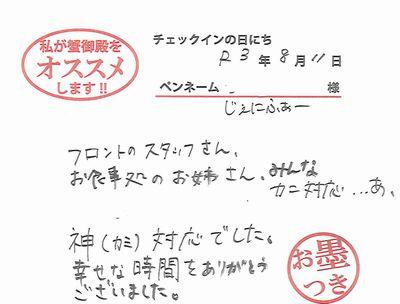 私が蟹御殿を
オススメ
します!!
チェックインの日にち
R3年8月11日
ペンネーム 様
じぇにふぁー
フロントのスタッフさん、
お食事処のお姉さん、みんな
カニ対応…あ、
神(カミ)対応でした。
幸せな時間をありがとう
ございました。
お墨
つき